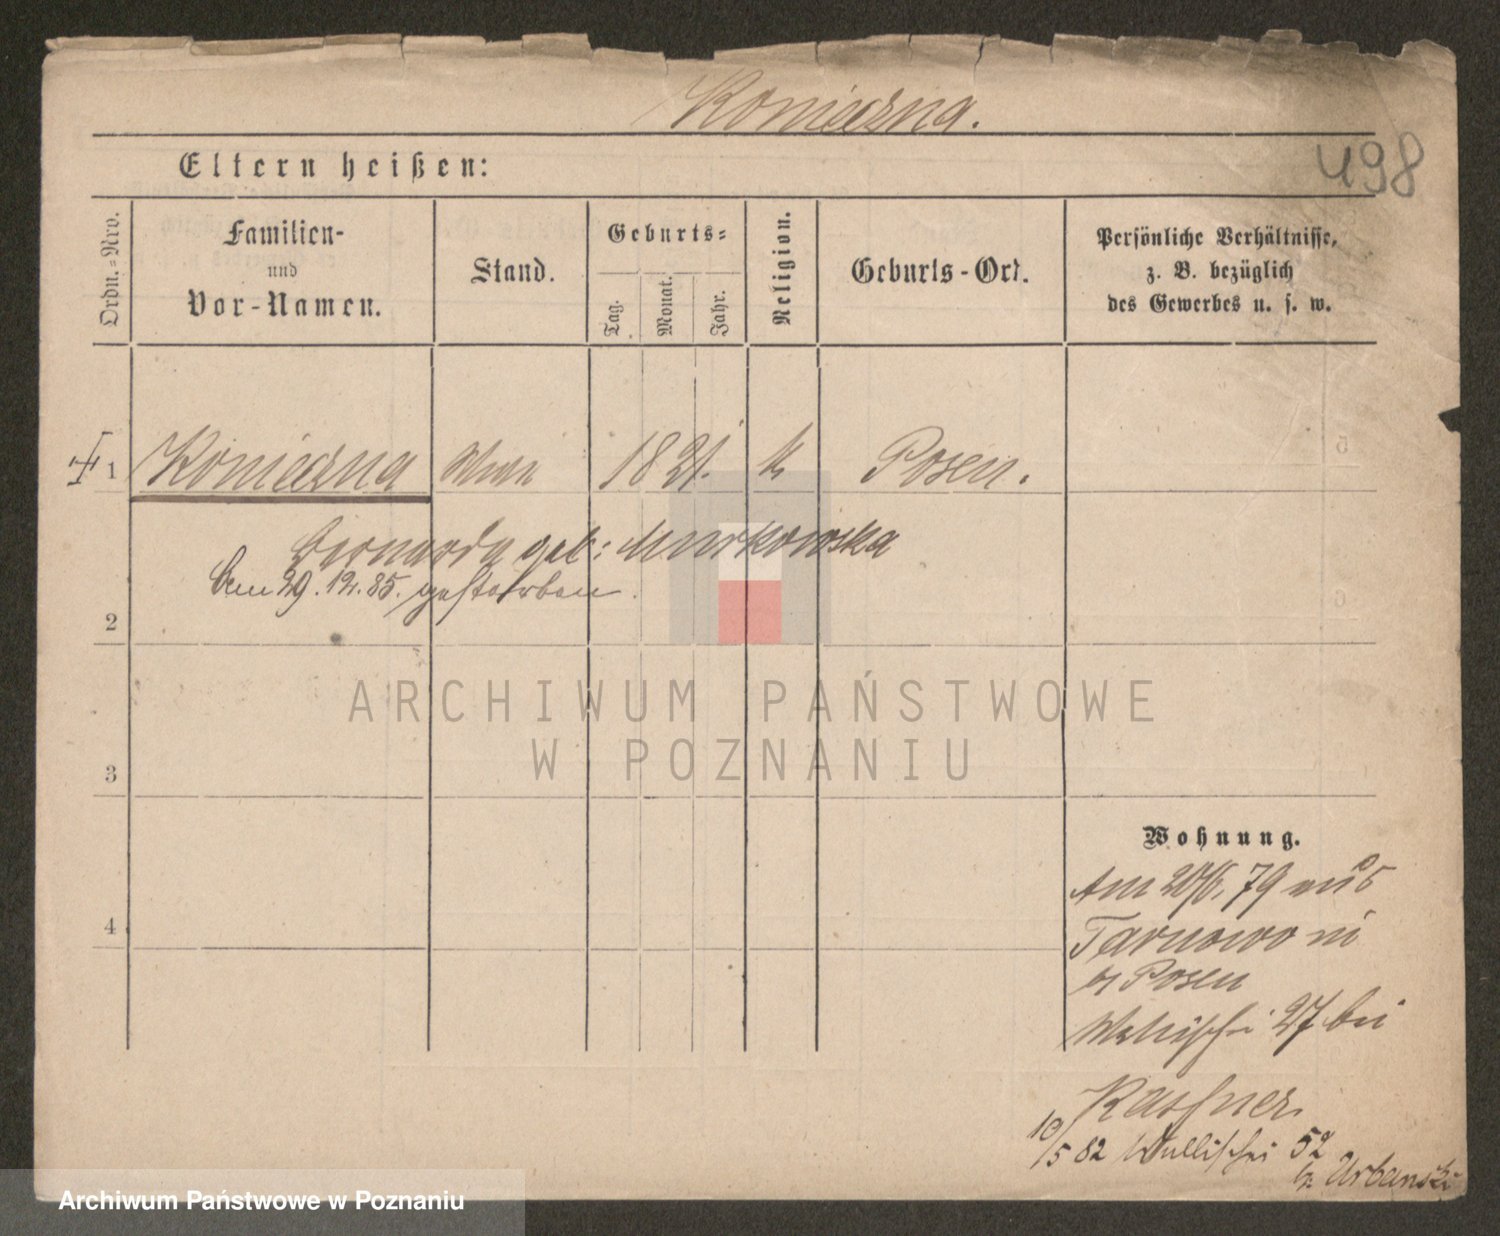 Konieczna.
498
Eltern heißen:
Ordn.-Nro.
Familien-
und
Vor-Namen.
Stand.
Geburts-
Tag.
Monat.
Jahr.
Religion.
Geburts-Ort.
Persönliche Verhältnisse,
z. B. bezüglich
des Gewerbes u. s. w.
1 Konieczna 1821. k Posen.
geb: Murkowska
Am 29.12.85. gestorben.
2
3
4
ARCHIWUM PAŃSTWOWE
W POZNANIU
Wohnung.
Am 20/6. 79 aus
Tarnowo
Posen
Wallischei 27 bei
Kastner.
10/5 82 Wallischei 52
b. Urbanski
Archiwum Państwowe w Poznaniu